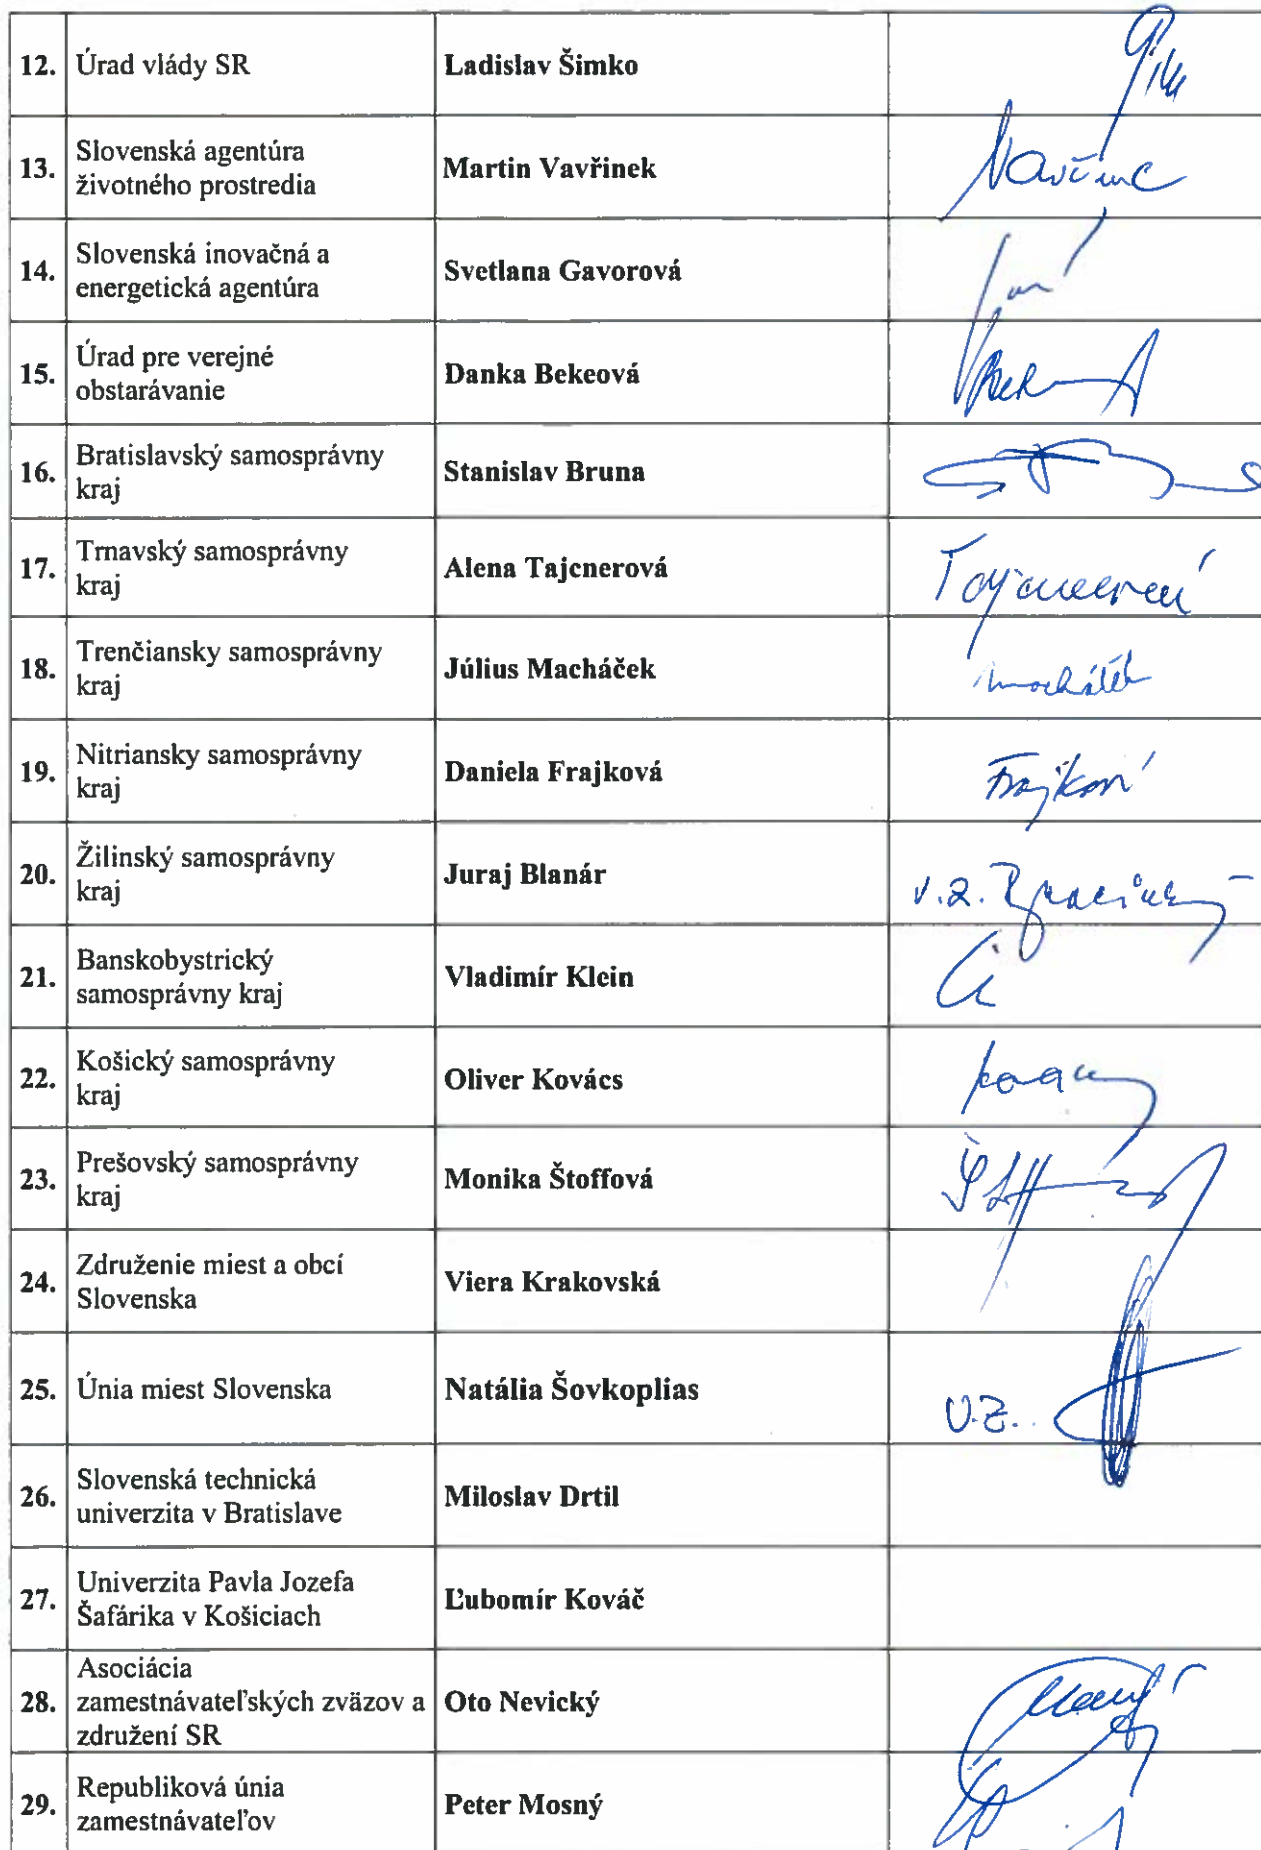 12. Úrad vlády SR Ladislav Šimko
13. Slovenská agentúra
životného prostredia Martin Vavřinek
14. Slovenská inovačná a
energetická agentúra Svetlana Gavorová
15. Úrad pre verejné
obstarávanie Danka Bekeová
16. Bratislavský samosprávny
kraj Stanislav Bruna
17. Trnavský samosprávny
kraj Alena Tajcnerová
18. Trenčiansky samosprávny
kraj Július Macháček
19. Nitriansky samosprávny
kraj Daniela Frajková
20. Žilinský samosprávny
kraj Juraj Blanár v.z.
21. Banskobystrický
samosprávny kraj Vladimír Klein
22. Košický samosprávny
kraj Oliver Kovács
23. Prešovský samosprávny
kraj Monika Štoffová
24. Združenie miest a obcí
Slovenska Viera Krakovská
25. Únia miest Slovenska Natália Šovkoplias v.z.
26. Slovenská technická
univerzita v Bratislave Miloslav Drtil
27. Univerzita Pavla Jozefa
Šafárika v Košiciach Ľubomír Kováč
28. Asociácia
zamestnávateľských zväzov a
združení SR Oto Nevický
29. Republiková únia
zamestnávateľov Peter Mosný